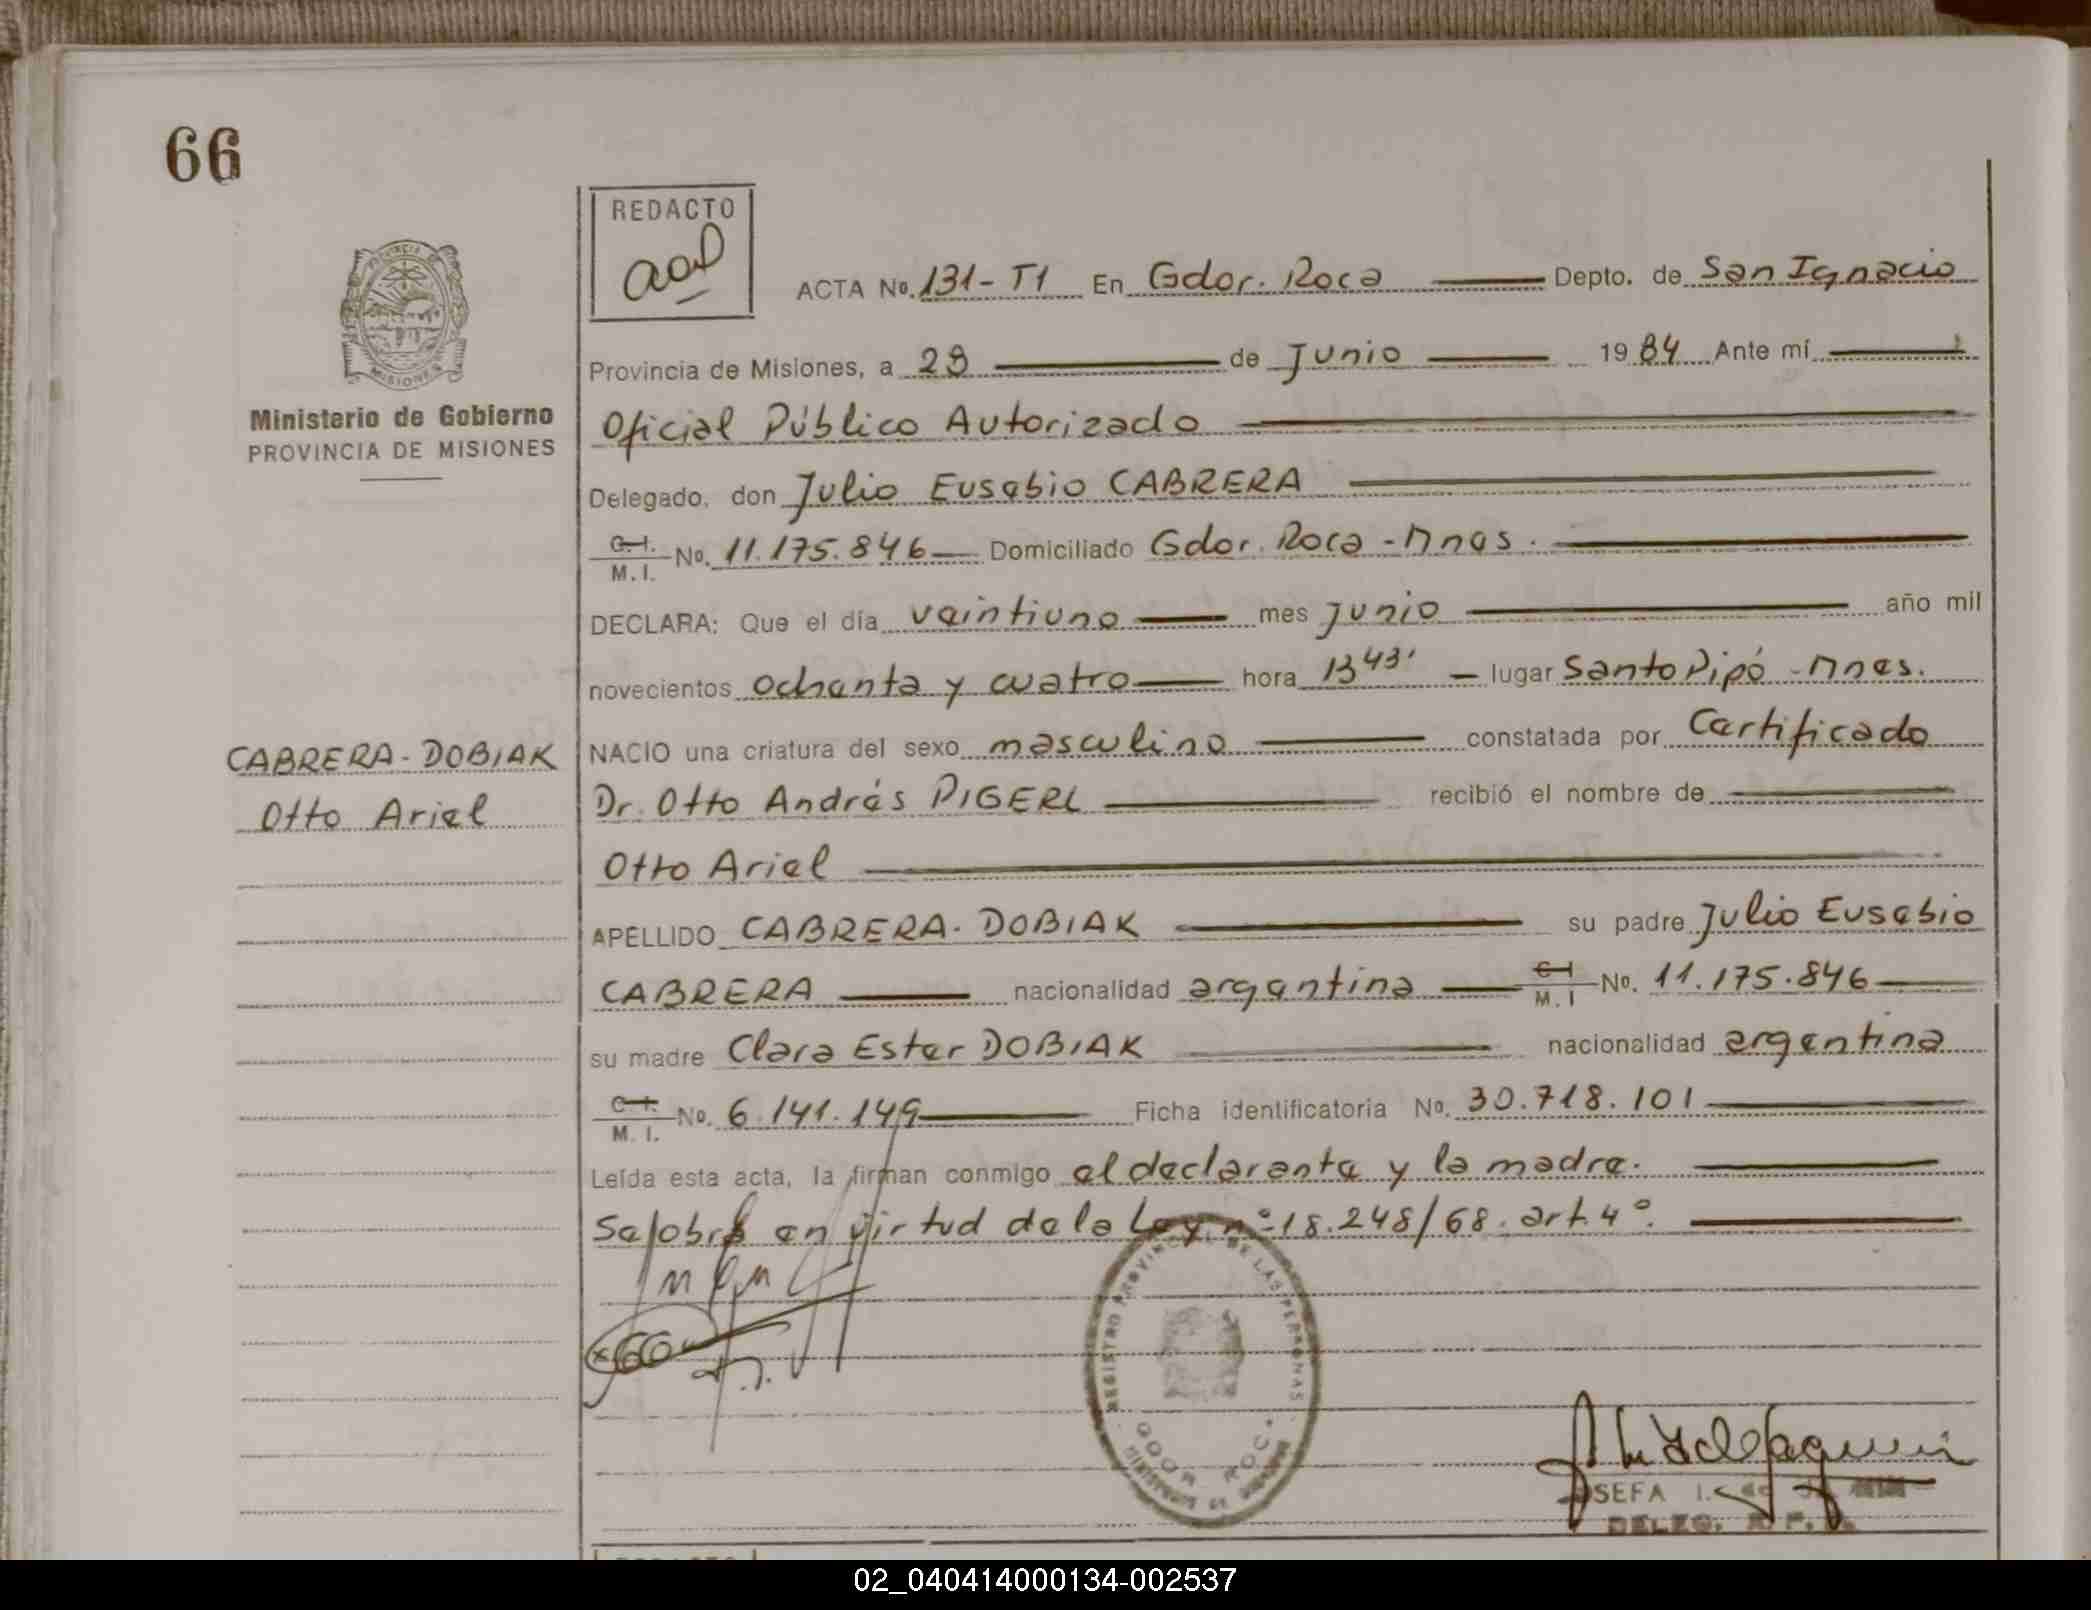 66
REDACTO
ACTA No. 131-T1 En Gdor. Roca Depto. de San Ignacio
Provincia de Misiones, a 29 de Junio 1984 Ante mí
Ministerio de Gobierno
PROVINCIA DE MISIONES
Oficial Público Autorizado
Delegado, don Julio Eusebio CABRERA
C.I. M.I. No. 11.175.846 Domiciliado Gdor. Roca - Mnes.
DECLARA: Que el día veintiuno mes junio año mil
novecientos ochenta y cuatro hora 13 43' lugar Santo Pipó - Mnes.
CABRERA-DOBIAK
Otto Ariel
NACIO una criatura del sexo masculino constatada por Certificado
Dr. Otto Andrés PIGERL recibió el nombre de
Otto Ariel
APELLIDO CABRERA-DOBIAK su padre Julio Eusebio
CABRERA nacionalidad argentina C.I M.I No. 11.175.846
su madre Clara Ester DOBIAK nacionalidad argentina
C.I. M.I. No. 6.141.149 Ficha identificatoria No. 30.718.101
Leída esta acta, la firman conmigo el declarante y la madre.
S/obrs en virtud de la Ley nº 18.248/68. art. 4º.
REGISTRO PROVINCIAL DE LAS PERSONAS
GDOR ROCA
MINISTERIO DE GOBIERNO
DELEG.
02_040414000134-002537